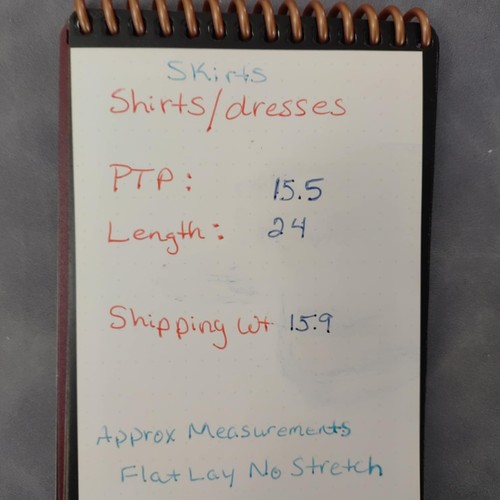 Skirts
Shirts/dresses
PTP: 15.5
Length: 24
Shipping wt 15.9
Approx Measurements
Flat Lay No Stretch